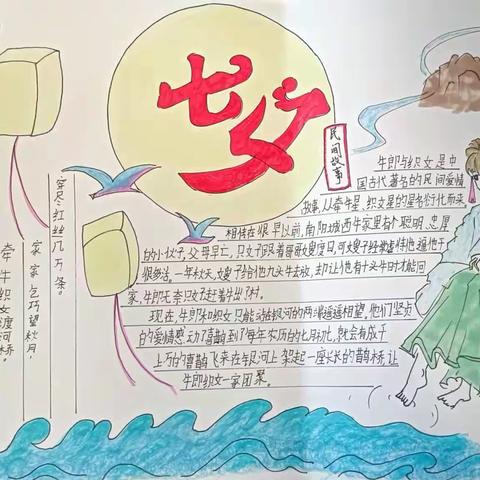 七夕
民间故事
牛郎与织女是中
国古代著名的民间爱情
故事,从牵牛星、织女星的星名衍化而来。
相传在很早以前,南阳城西牛家里有个聪明.忠厚
的小伙子,父母早亡,只好跟着哥哥嫂嫂度日,可嫂子经常虐待他,逼他干
很多活。一年秋天,嫂子给他九头牛去放,却让他有十头牛时才能回
家,牛郎无奈只好赶着牛出了村。
现在,牛郎和织女只能站在银河的两端遥遥相望。他们坚贞
的爱情感动了喜鹊,到了每年农历的七月初七,就会有成千
上万的喜鹊飞来在银河上架起一座长长的鹊桥,让
牛郎织女一家团聚。
穿尽红丝几万条。
家家乞巧望秋月,
牵牛织女渡河桥。